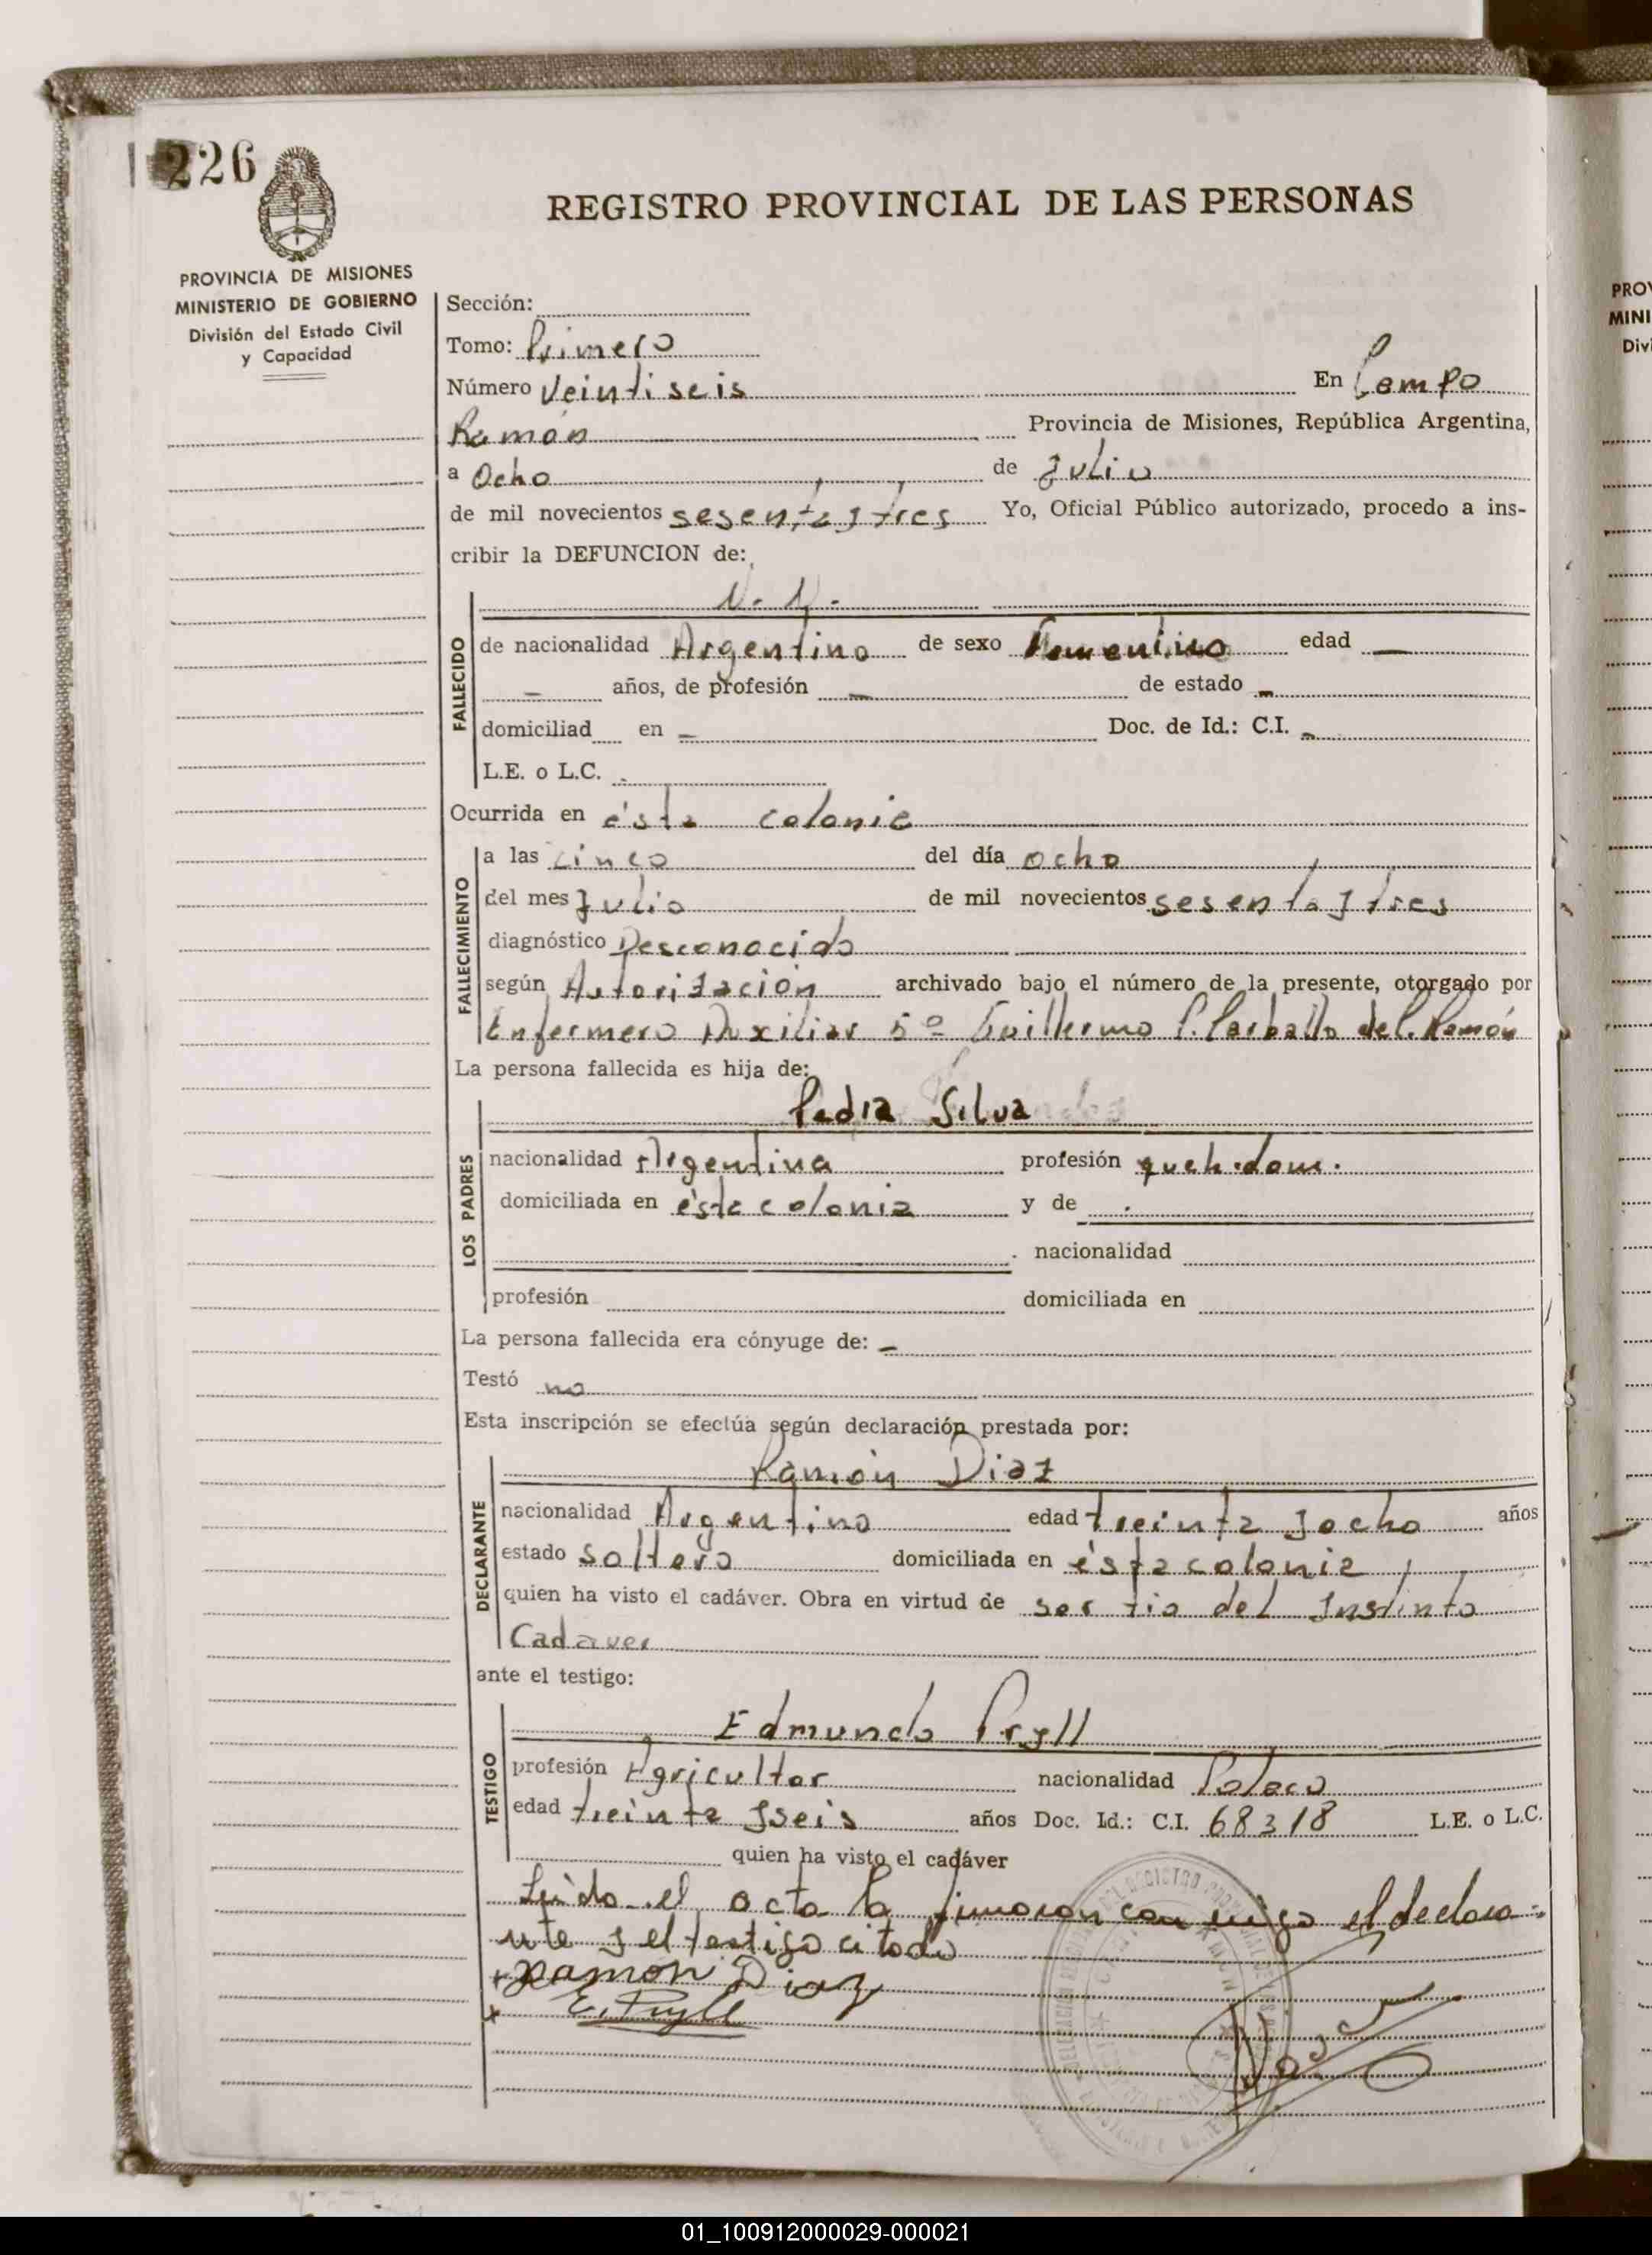 226
REGISTRO PROVINCIAL DE LAS PERSONAS
PROVINCIA DE MISIONES
MINISTERIO DE GOBIERNO
División del Estado Civil
y Capacidad
Sección:
Tomo: Primero
Número Veintiseis En Campo
Ramón Provincia de Misiones, República Argentina,
a Ocho de Julio
de mil novecientos sesenta y tres Yo, Oficial Público autorizado, procedo a ins-
cribir la DEFUNCION de:
N. N.
FALLECIDO
de nacionalidad Argentino de sexo edad —
— años, de profesión — de estado —
domiciliad en — Doc. de Id.: C.I. —
L.E. o L.C. -
Ocurrida en ésta colonia
FALLECIMIENTO
a las cinco del día ocho
del mes Julio de mil novecientos sesenta y tres
diagnóstico Desconocido
según Autorización archivado bajo el número de la presente, otorgado por
Enfermero Auxiliar 5º Guillermo P. Carballo de C. Ramón
La persona fallecida es hija de:
Pedra Silva
LOS PADRES
nacionalidad Argentina profesión queh. dom.
domiciliada en ésta colonia y de
nacionalidad
profesión domiciliada en
La persona fallecida era cónyuge de: —
Testó no
Esta inscripción se efectúa según declaración prestada por:
Ramón Diaz
DECLARANTE
nacionalidad Argentino edad treinta y ocho años
estado soltero domiciliada en ésta colonia
quien ha visto el cadáver. Obra en virtud de ser tio del
Cadaver
ante el testigo:
Edmundo Pryll
TESTIGO
profesión Agricultor nacionalidad Polaco
edad treinta y seis años Doc. Id.: C.I. 68318 L.E. o L.C.
quien ha visto el cadáver
Leido el acta la firmaron con migo el declara-
nte y el testigo citado
+ Ramon Diaz
x E. Pryll
PROV
MINI
Divi
01_100912000029-000021